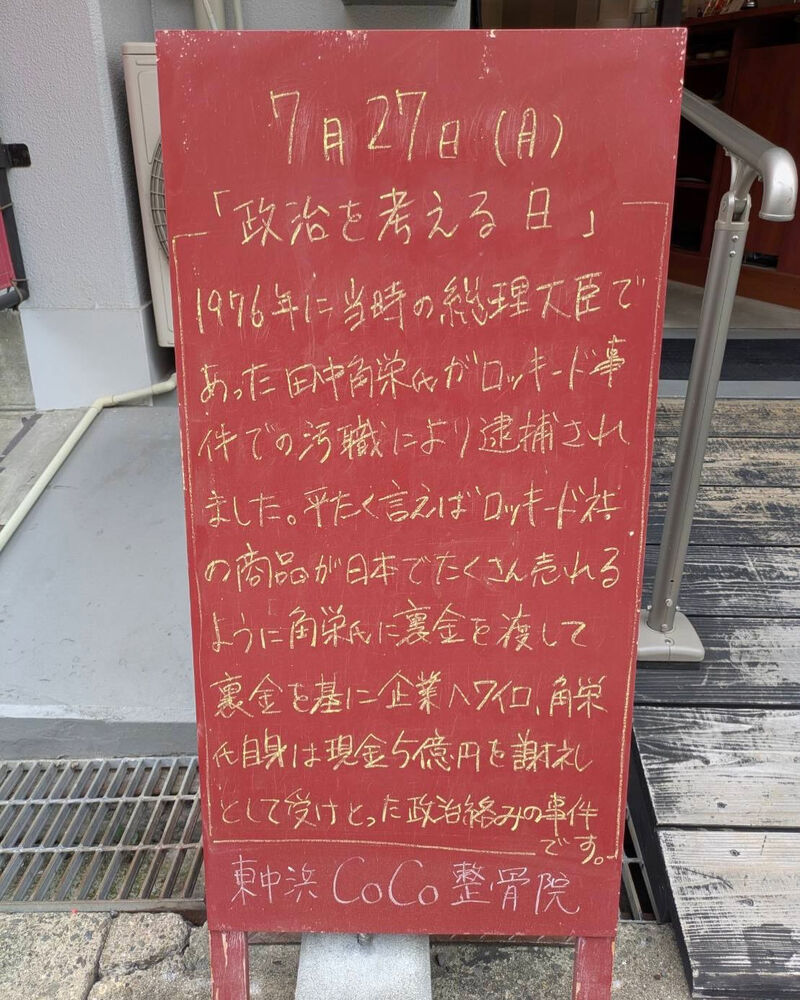 7月27日(月)
「政治を考える日」
1976年に当時の総理大臣で
あった田中角栄氏がロッキード事
件での汚職により逮捕され
ました。平たく言えばロッキード社
の商品が日本でたくさん売れる
ように角栄氏に裏金を渡して
裏金を基に企業へワイロ、角栄
氏自身は現金5億円を謝礼
として受けとった政治絡みの事件
です。
東中浜CoCo整骨院